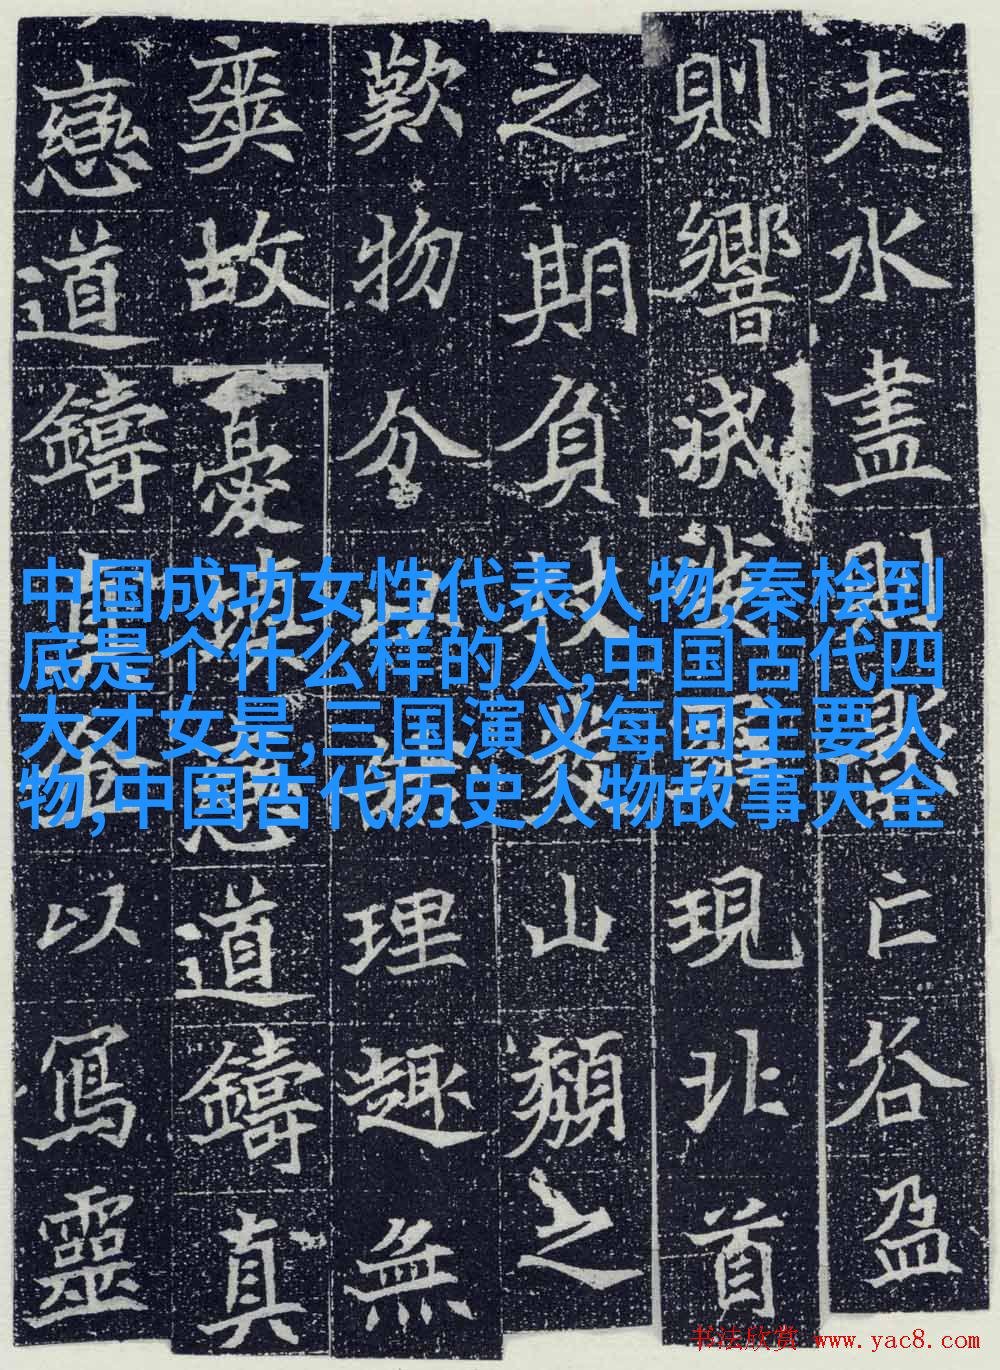 夫水盡則亡谷盈
則響現北首
之期負杖發山頹之
歎物分以理趣無
爽故憂道鑄真
戀道鑄以寫靈
中国成功女性代表人物,秦桧到
底是个什么样的人,中国古代四
大才女是,三国演义每回主要人
物,中国古代历史人物故事大全
书法欣赏 www.yac8.com